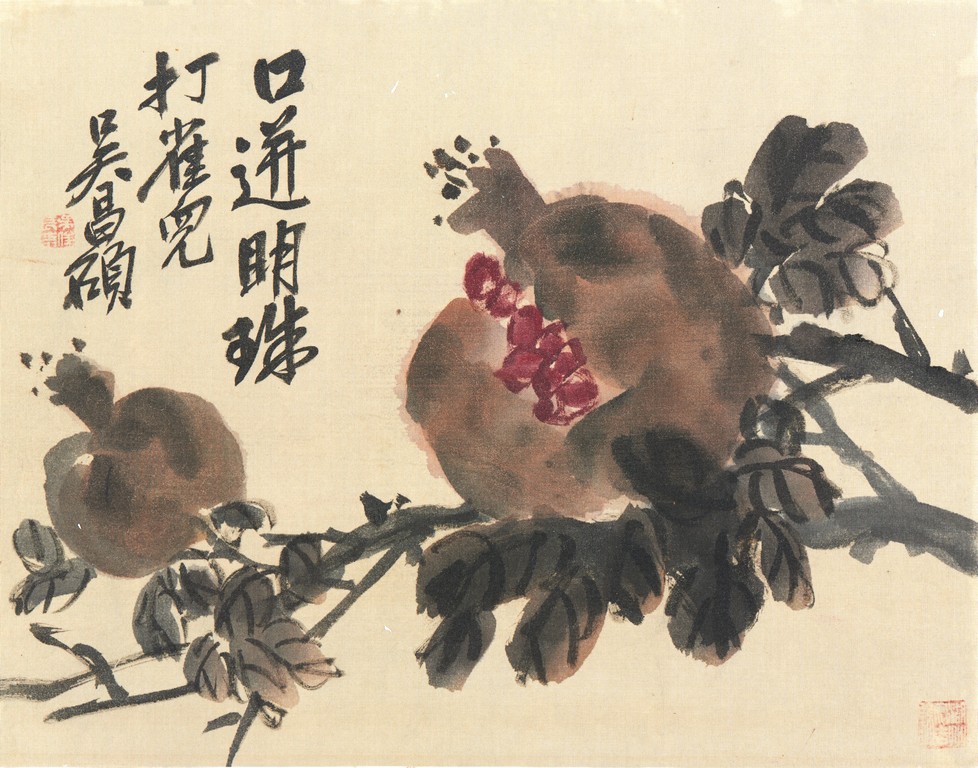 口迸明珠
打雀兒
吳昌碩